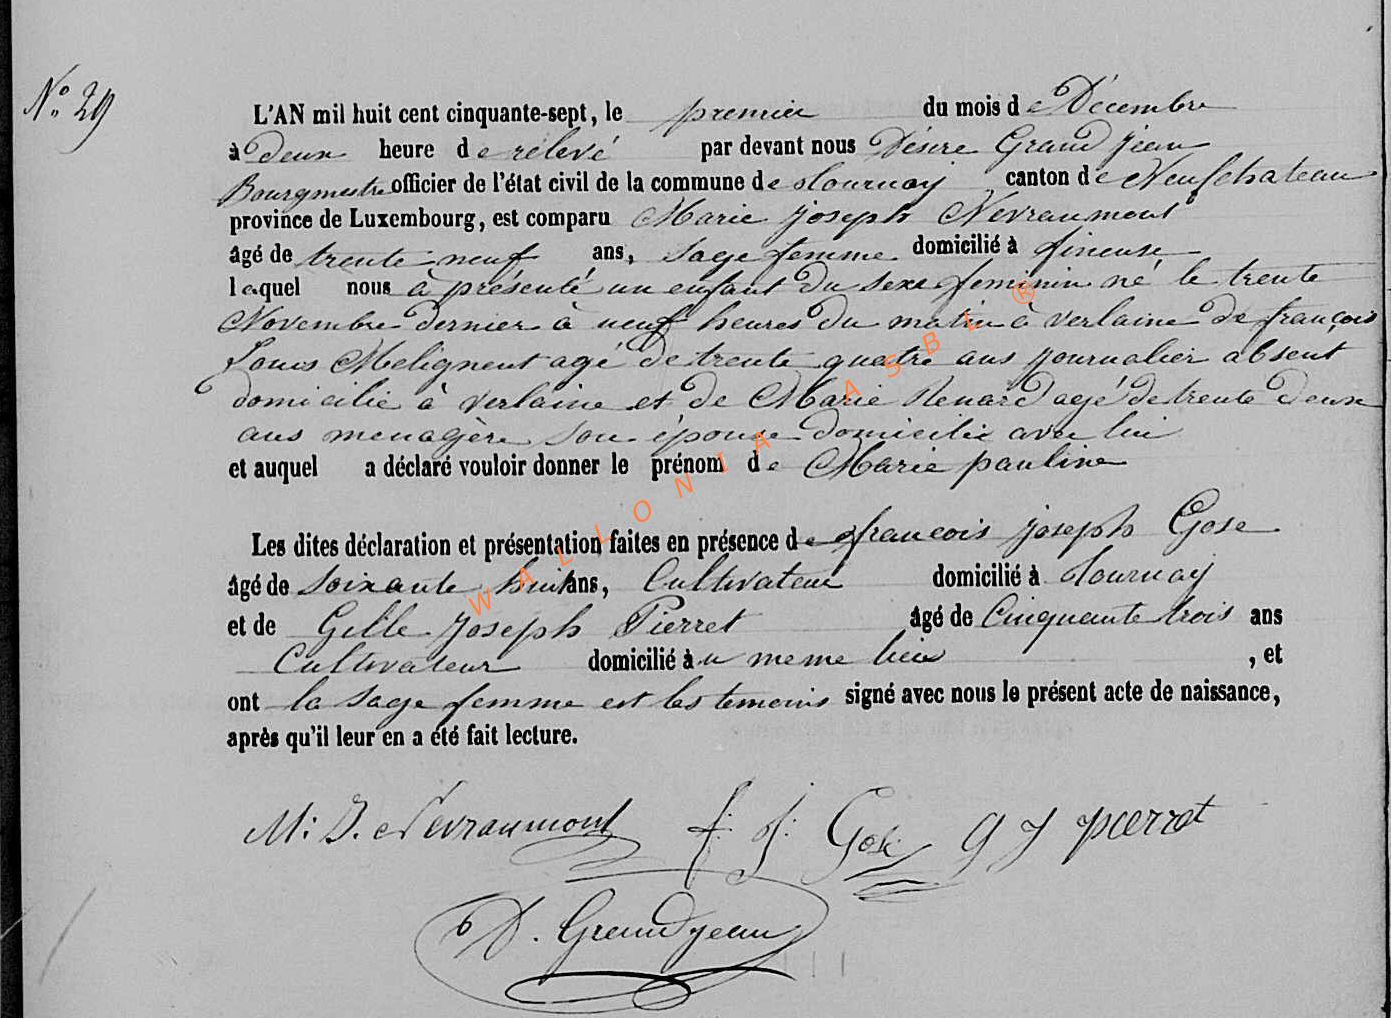 N° 29
L'AN mil huit cent cinquante-sept, le premier du mois de Décembre
à deux heure de rélevé par devant nous Désiré Grand jean
Bourgmestre officier de l'état civil de la commune de tournay canton de Neufchateau
province de Luxembourg, est comparu Marie joseph Nevraumont
âgé de trente neuf ans, sage femme domicilié à fineuse
laquel nous à présenté un enfant du sexe feminin né le trente
Novembre dernier à neuf heures du matin à verlaine de françois
Louis Melignent agé de trente quatre ans journalier absent
domicilié à verlaine et de Marie Renard agé de trente deux
ans menagère son épouse domicilié avec lui
et auquel a déclaré vouloir donner le prénom de Marie pauline
Les dites déclaration et présentation faites en présence de françois joseph Gose
âgé de soixante huit ans, Cultivateur domicilié à tournay
et de Gille Joseph Pierret âgé de Cinquante trois ans
Cultivateur domicilié àu meme lieu , et
ont la sage femme est les temoins signé avec nous le présent acte de naissance,
après qu'il leur en a été fait lecture.
M: J. Nevraumont f: J: Gose G J pierret
D. Grandjean
WALLONIA ASBL ®